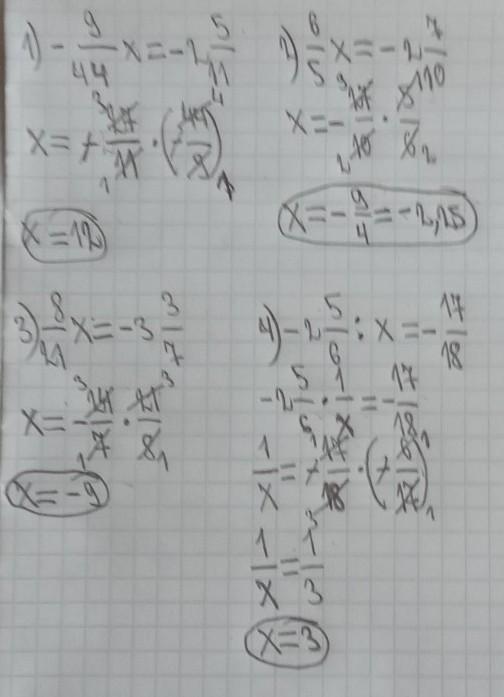 1) -9/44 x = -2 5/11
x = +27/11 · (+44/9)
x = 12
2) 6/5 x = -2 7/10
x = -27/10 · 5/6
x = -9/4 = -2,25
3) 8/21 x = -3 3/7
x = -24/7 · 21/8
x = -9
4) -2 5/6 : x = -17/18
-2 5/6 · 1/x = -17/18
1/x = +17/18 · (+6/17)
1/x = 1/3
x = 3